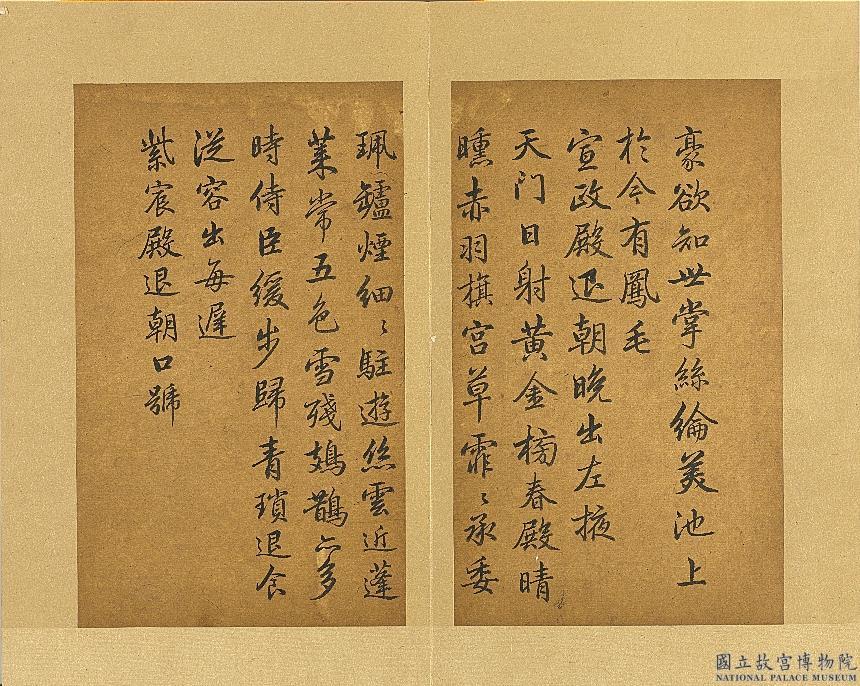 豪欲知世掌絲綸美池上
於今有鳳毛
宣政殿退朝晚出左掖
天门日射黃金榜春殿晴
曛赤羽旗宮草霏〻承委
珮鑪煙細〻駐遊絲雲近蓬
萊常五色雪殘鳷鵲亦多
時侍臣緩步歸青瑣退食
從容出每遲
紫宸殿退朝口號
國立故宮博物院
NATIONAL PALACE MUSEUM